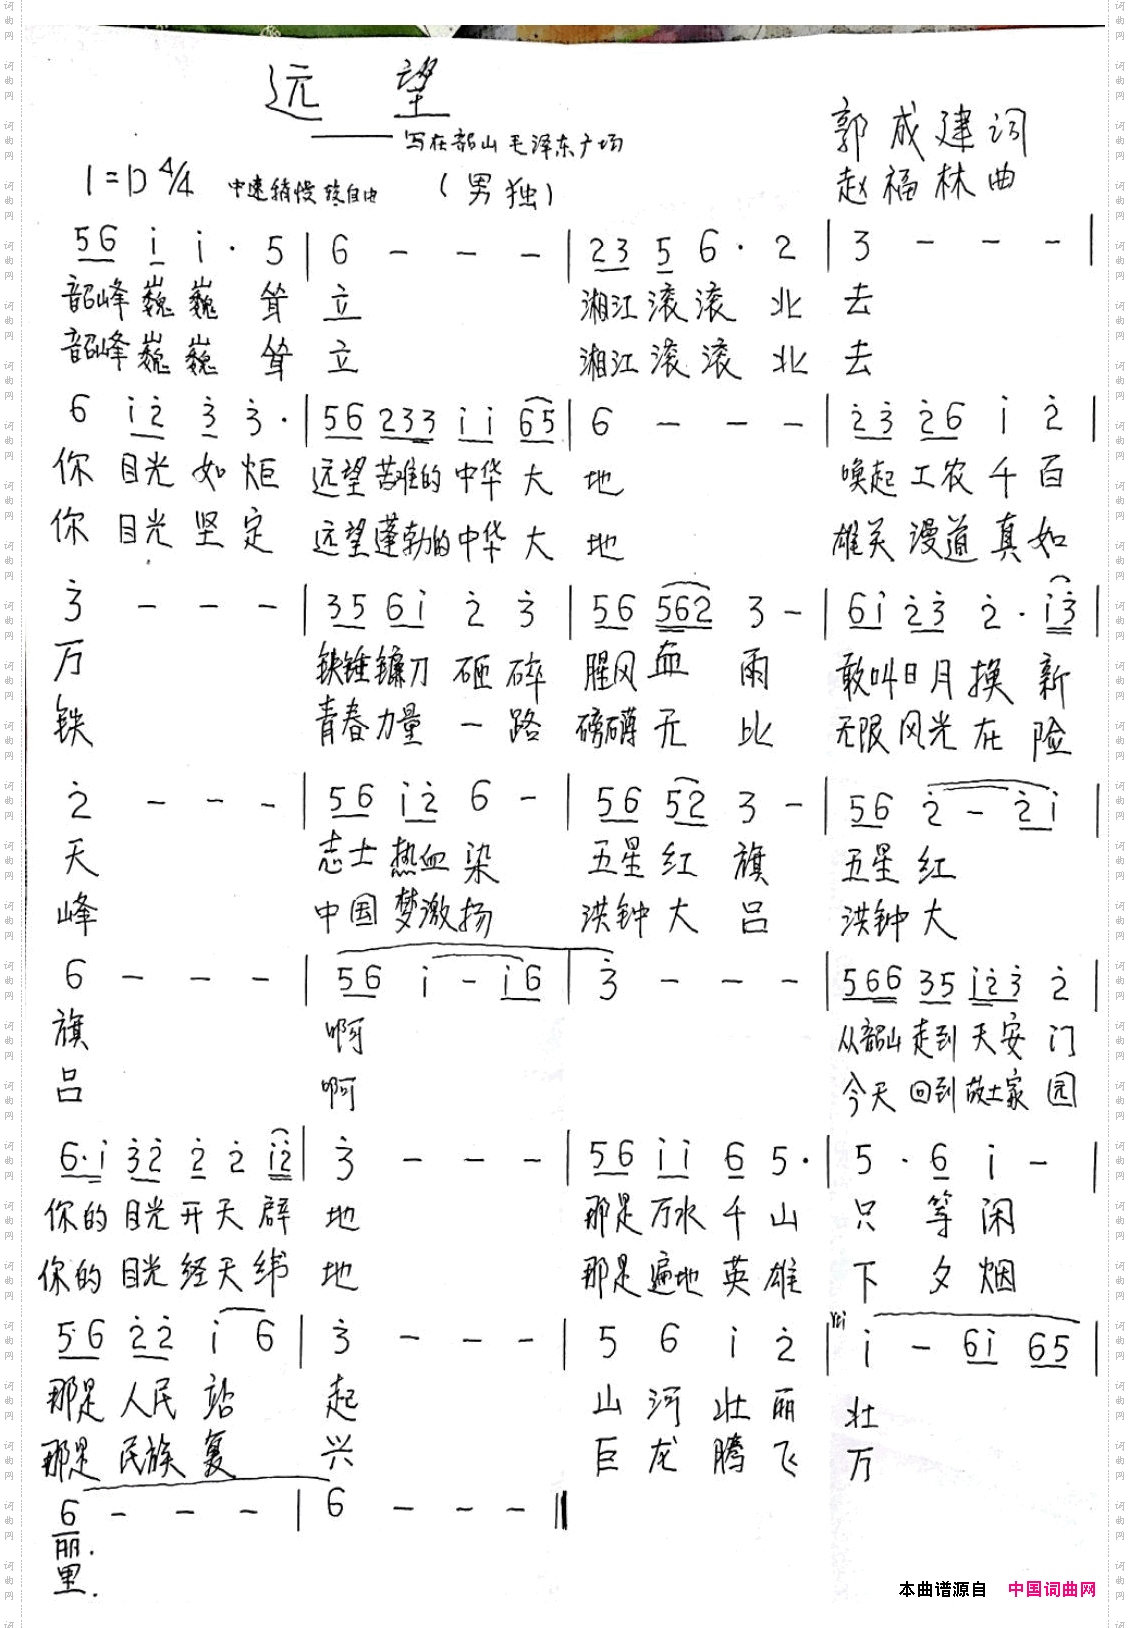 远 望
——写在韶山毛泽东广场
郭成建词
1=D 4/4 中速稍慢 较自由 (男独)
赵福林曲
56 i i· 5 | 6 - - - | 23 5 6· 2 | 3 - - - |
韶峰巍巍耸立 湘江滚滚北去
韶峰巍巍耸立 湘江滚滚北去
6 i2 3 3· | 56 233 ii 65 | 6 - - - | 23 26 i 2 |
你目光如炬 远望苦难的中华大地 唤起工农千百
你目光坚定 远望蓬勃的中华大地 雄关漫道真如
3 - - - | 35 6i 2 3 | 56 562 3 - | 6i 23 2· i3 |
万 铁锤镰刀砸碎 腥风血雨 敢叫日月换新
铁 青春力量一路 磅礴无比 无限风光在险
2 - - - | 56 i2 6 - | 56 52 3 - | 56 2 - 2i |
天 志士热血染 五星红旗 五星红
峰 中国梦激扬 洪钟大吕 洪钟大
6 - - - | 56 i - i6 | 3 - - - | 566 35 i23 2 |
旗 啊 从韶山走到天安门
吕 啊 今天回到故土家园
6·i 32 2 2 i2 | 3 - - - | 56 ii 6 5· | 5 · 6 i - |
你的目光开天辟地 那是万水千山只等闲
你的目光经天纬地 那是遍地英雄下夕烟
5·6 22 i 6 | 3 - - - | 5 6 i 2 | i - 6i 65 |
那是人民站起 山河壮丽 壮
那是民族复兴 巨龙腾飞 万
6 - - - | 6 - - - ‖
丽.
里.
本曲谱源自 中国词曲网